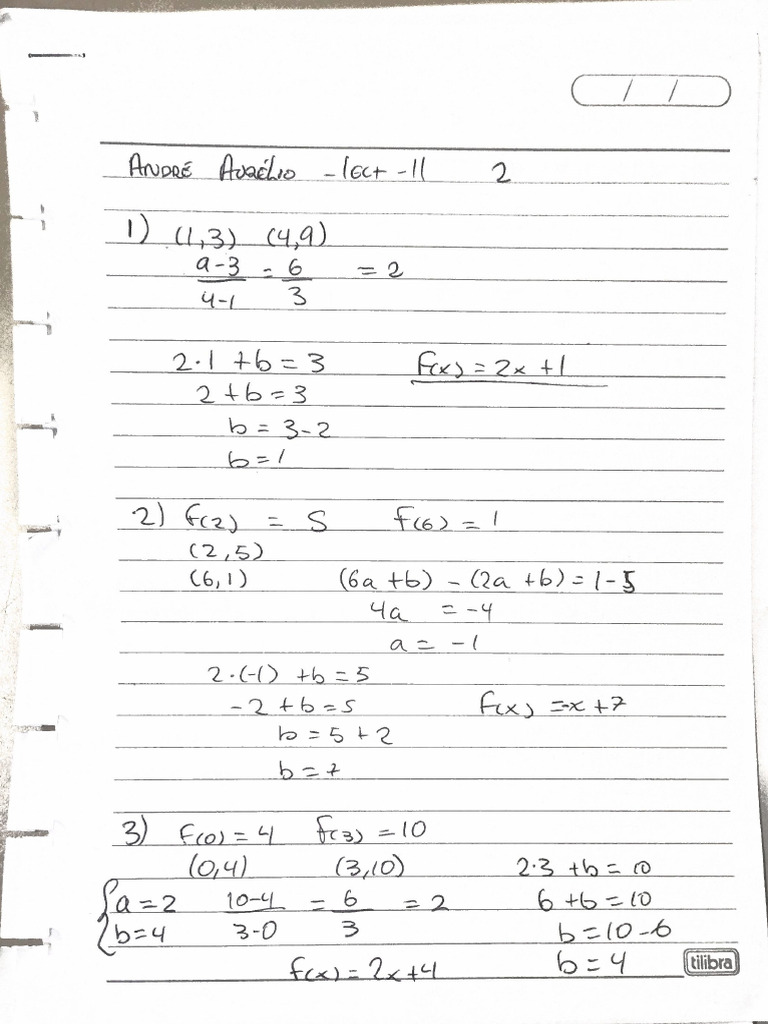 / /
ANDRÉ AURÉLIO 2
1) (1,3) (4,9)
9-3 = 6 = 2
4-1 3
2·1 + b = 3 f(x) = 2x + 1
2 + b = 3
b = 3-2
b = 1
2) f(2) = 5 f(6) = 1
(2,5)
(6,1) (6a + b) - (2a + b) = 1 - 5
4a = -4
a = -1
2·(-1) + b = 5
-2 + b = 5 f(x) = -x + 7
b = 5 + 2
b = 7
3) f(0) = 4 f(3) = 10
(0,4) (3,10) 2·3 + b = 10
{ a = 2 10-4 = 6 = 2 6 + b = 10
b = 4 3-0 3 b = 10 - 6
f(x) = 2x + 4 b = 4 tilibra